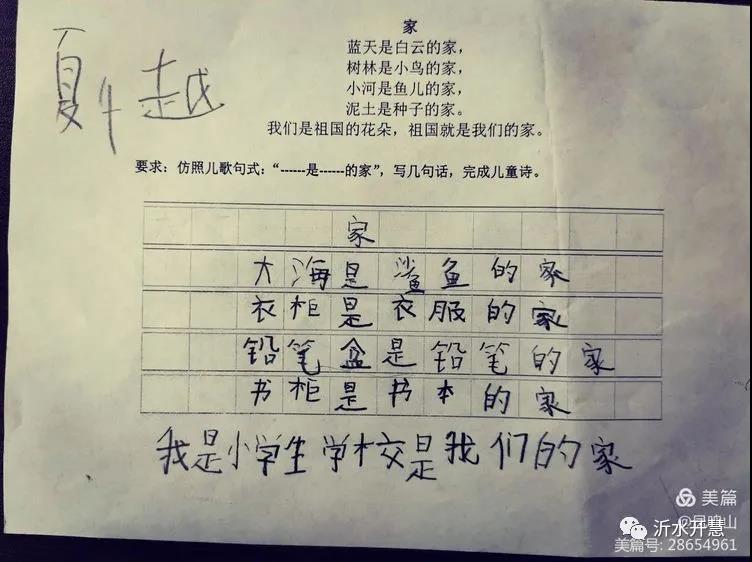 家
蓝天是白云的家，
树林是小鸟的家，
小河是鱼儿的家，
泥土是种子的家。
我们是祖国的花朵，祖国就是我们的家。
要求：仿照儿歌句式：“------是------的家”，写几句话，完成儿童诗。
家
大海是鲨鱼的家
衣柜是衣服的家
铅笔盒是铅笔的家
书柜是书本的家
我是小学生学校是我们的家
美篇
沂水开慧
美篇号: 28654961